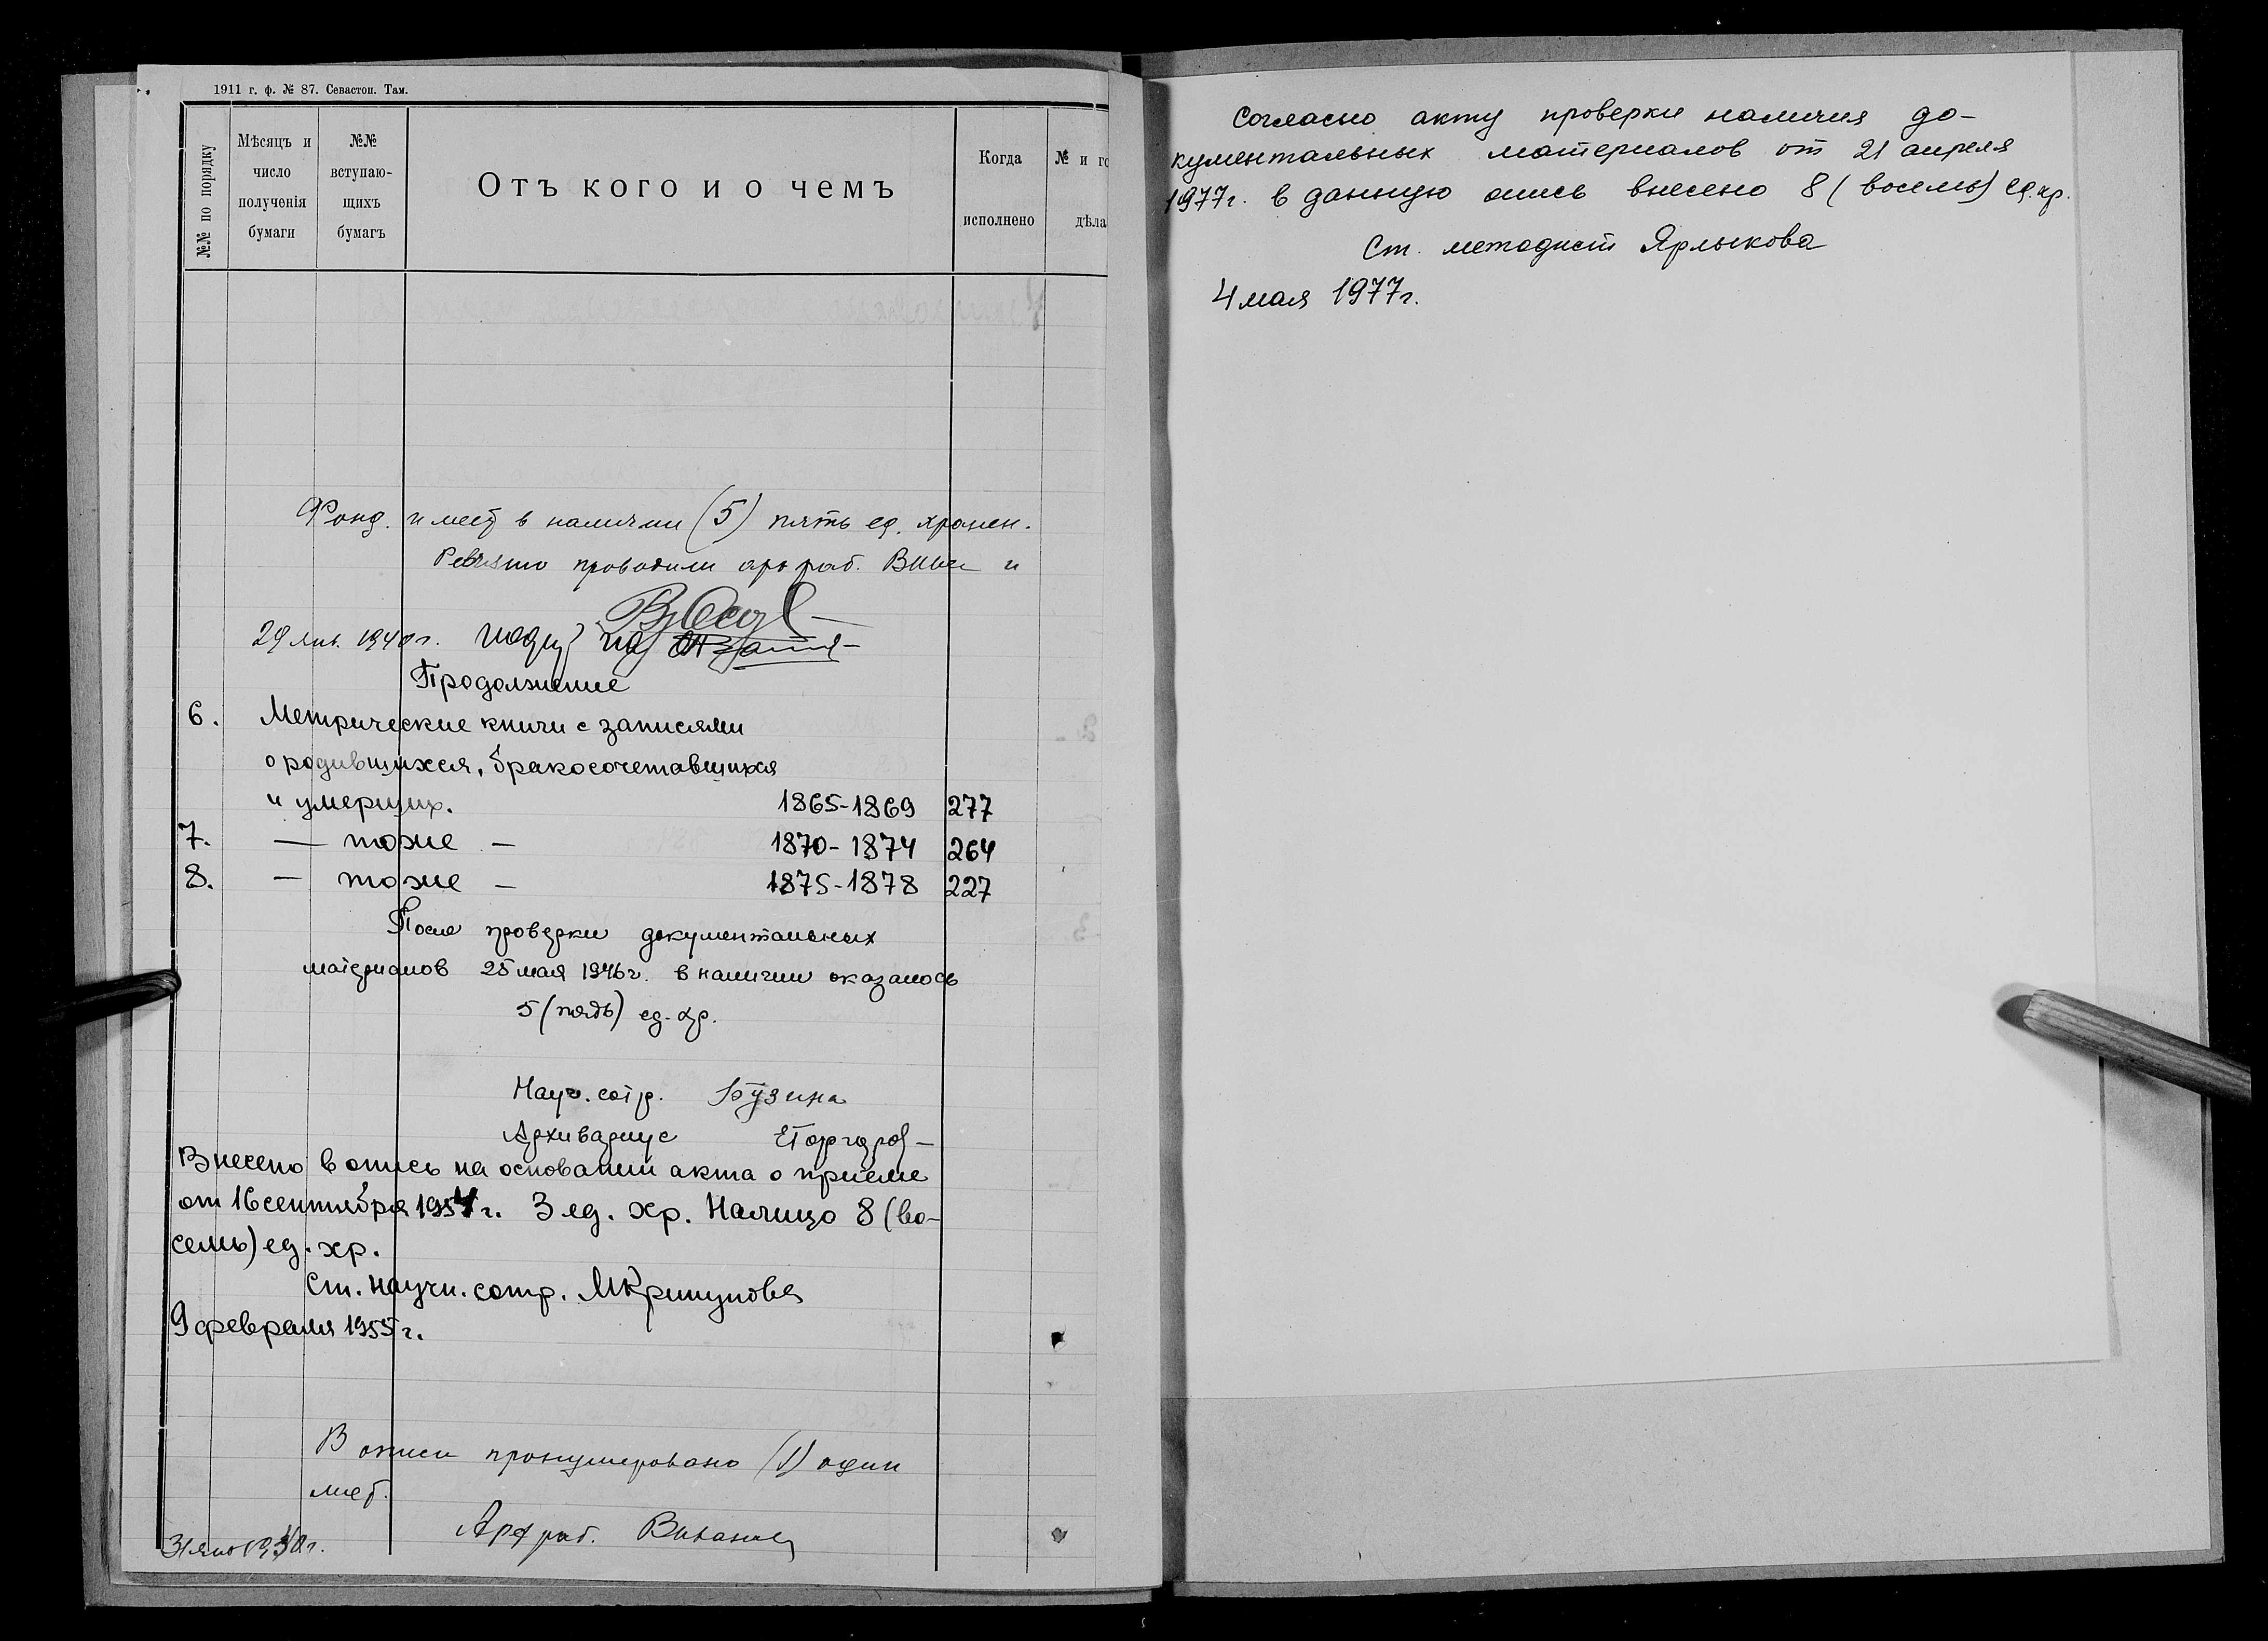 1911 г. ф. № 87. Севастоп. Там.
№№ по порядку
Мѣсяцъ и
число
полученія
бумаги
№№
вступаю-
щихъ
бумагъ
Отъ кого и о чемъ
Когда
исполнено
№ и го
дѣла
Фонд. имеет в наличии (5) пять ед. хранен.
проводили арх раб. и
29 янв. 1940 г.
Продолжение
6. Метрические книги с записями
о родившихся, бракосочетавшихся
и умерших. 1865-1869 277
7. — тоже — 1870-1874 264
8. — тоже — 1875-1878 227
После проверки документальных
материалов 25 мая 1946 г. в наличии оказалось
5 (пять) ед. хр.
Науч. сотр. Бузина
Архивариус
Внесено в опись на основании акта о приёме
от 16 сентября 1954 г. 3 ед. хр. Налицо 8 (во-
семь) ед. хр.
Ст. научн. сотр.
9 февраля 1955 г.
В описи пронумеровано (1) один
лист.
Арх раб.
Согласно акту проверки наличия до-
кументальных материалов от 21 апреля
1977 г. в данную опись внесено 8 (восемь) ед. хр.
Ст. методист Ярлыкова
4 мая 1977 г.